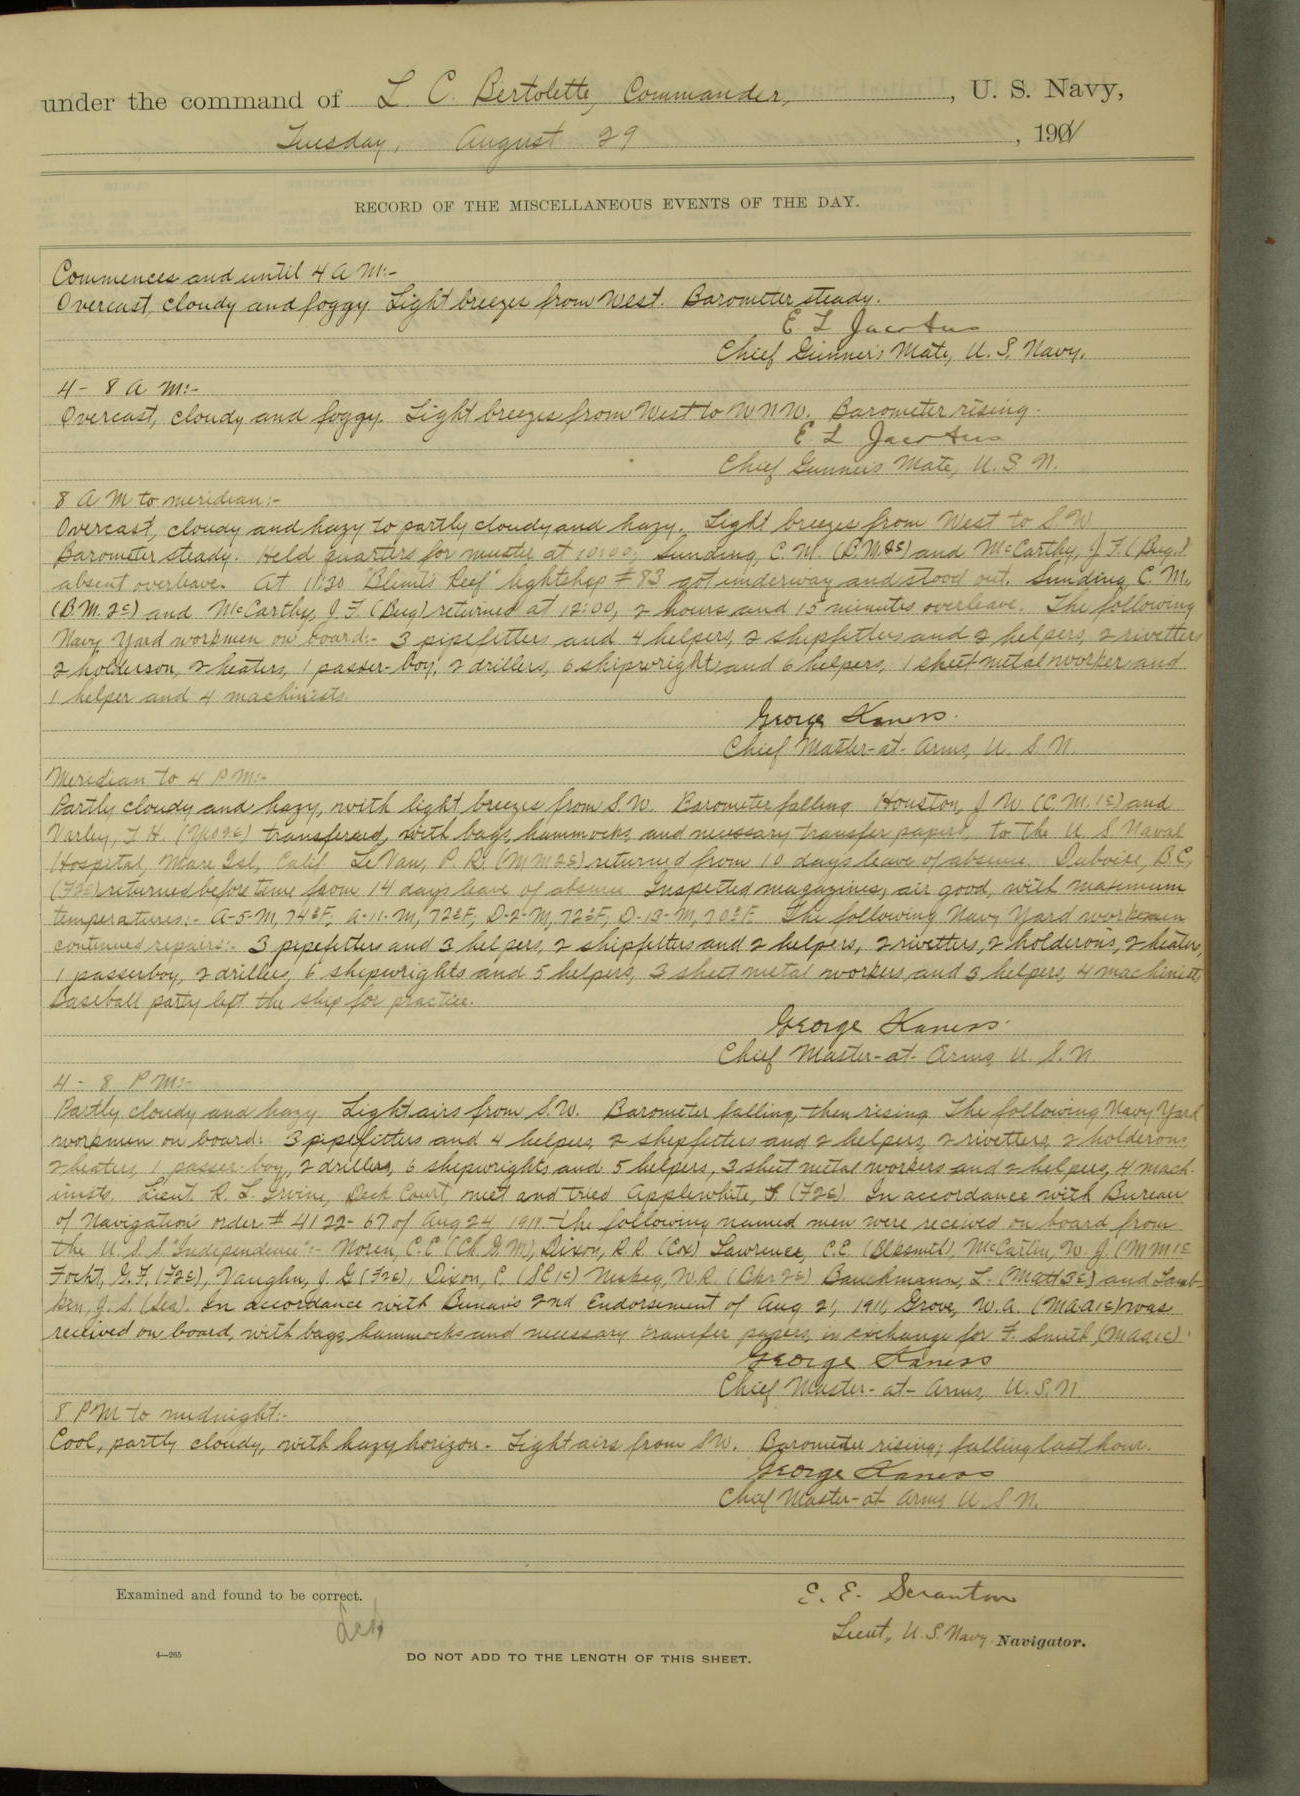 under the command of L. C. Bertolette, Commander, , U. S. Navy,
Tuesday, August 29 , 1901
RECORD OF THE MISCELLANEOUS EVENTS OF THE DAY.
Commences and until 4 A M:-
Overcast, cloudy and foggy. Light breezes from West. Barometer steady.
E L Jacobus
Chief Gunner's Mate, U. S. Navy.
4 - 8 A M:-
Overcast, cloudy and foggy. Light breezes from West to WNW. Barometer rising.
E L Jacobus
Chief Gunner's Mate, U. S. N.
8 A M to meridian:-
Overcast, cloudy and hazy to partly cloudy and hazy. Light breezes from West to S.W.
Barometer steady. Held quarters for muster at 10:00; Sunding, C. M. (B.M.2c) and McCarthy, J. F. (Bug.)
absent overleave. At 11:30 "Blunts Reef" lightship # 83 got underway and stood out. Sunding C. M.
(B.M. 2c) and McCarthy, J. F. (Bug) returned at 12:00, 2 hours and 15 minutes overleave. The following
Navy Yard workmen on board:- 3 pipefitters and 4 helpers, 2 shipfitters and 2 helpers, 2 rivetters
2 holderson, 2 heaters, 1 passer-boy, 2 drillers, 6 shipwrights and 6 helpers, 1 sheet metal worker and
1 helper and 4 machinists.
George Kaness.
Chief Master-at-Arms, U. S. N.
Meridian to 4 P M:-
Partly cloudy and hazy, with light breezes from S.W. Barometer falling. Houston, J. W. (C.M.1c) and
Varley, T. H. transferred, with bags, hammocks and necessary transfer papers, to the U S Naval
Hospital, Mare Isl, Calif. LeVan, P. R. (M M 2c) returned from 10 days leave of absence. Duboise, B C,
(F2c) returned before time from 14 days leave of absence. Inspected magazines, air good, with maximum
temperatures:- A-5-M, 74°F, A-11-M, 72°F, D-2-M, 72°F, D-13-M, 70°F. The following Navy Yard workmen
continued repairs:- 3 pipefitters and 3 helpers, 2 shipfitters and 2 helpers, 2 rivetters, 2 holderons, 2 heaters,
1 passerboy, 2 drillers, 6 shipwrights and 5 helpers, 3 sheet metal workers, and 3 helpers, 4 machinists
Baseball party left the ship for practice.
George Kaness.
Chief Master-at-Arms, U. S. N.
4 - 8 P M:-
Partly cloudy and hazy. Light airs from S.W. Barometer falling, then rising. The following Navy Yard
workmen on board: 3 pipefitters and 4 helpers, 2 shipfitters and 2 helpers, 2 rivetters, 2 holderons
2 heaters, 1 passer-boy, 2 drillers, 6 shipwrights and 5 helpers, 3 sheet metal workers and 2 helpers, 4 mach-
inists. Lieut. R. L. Irvine, Deck Court, met and tried Applewhite, (F2c). In accordance with Bureau
of Navigation order # 4122-67 of Aug 24 1911 the following named men were received on board from
the U. S. S. "Independence":- Noren, C. E. (Ch. G. M), Dixon, R. R. (Cox) Lawrence, C. E. (Blksmith), McCartin, W. J. (M M 1c
Focht, G. F. (F2c), Vaughn, J. G (F2c), Dixon, C. (SC 1c) W. R. (Bkr 2c) Bauckmann, L. (Matt 3c) and Lamb-
ken, J. S. (Sea). In accordance with Bunav's 2nd Endorsement of Aug 21, 1911, Grove, W. A. (MAA1c) was
received on board, with bags, hammocks and necessary transfer papers, in exchange for F. Smith, (MAA1c).
George Kaness
Chief Master-at-Arms, U. S. N
8 P M to midnight:-
Cool, partly cloudy, with hazy horizon. Light airs from SW. Barometer rising; falling last hour.
George Kaness
Chief Master-at-Arms U. S. N.
Examined and found to be correct.
E. E. Scranton
Lieut, U. S. Navy Navigator.
4—265
DO NOT ADD TO THE LENGTH OF THIS SHEET.